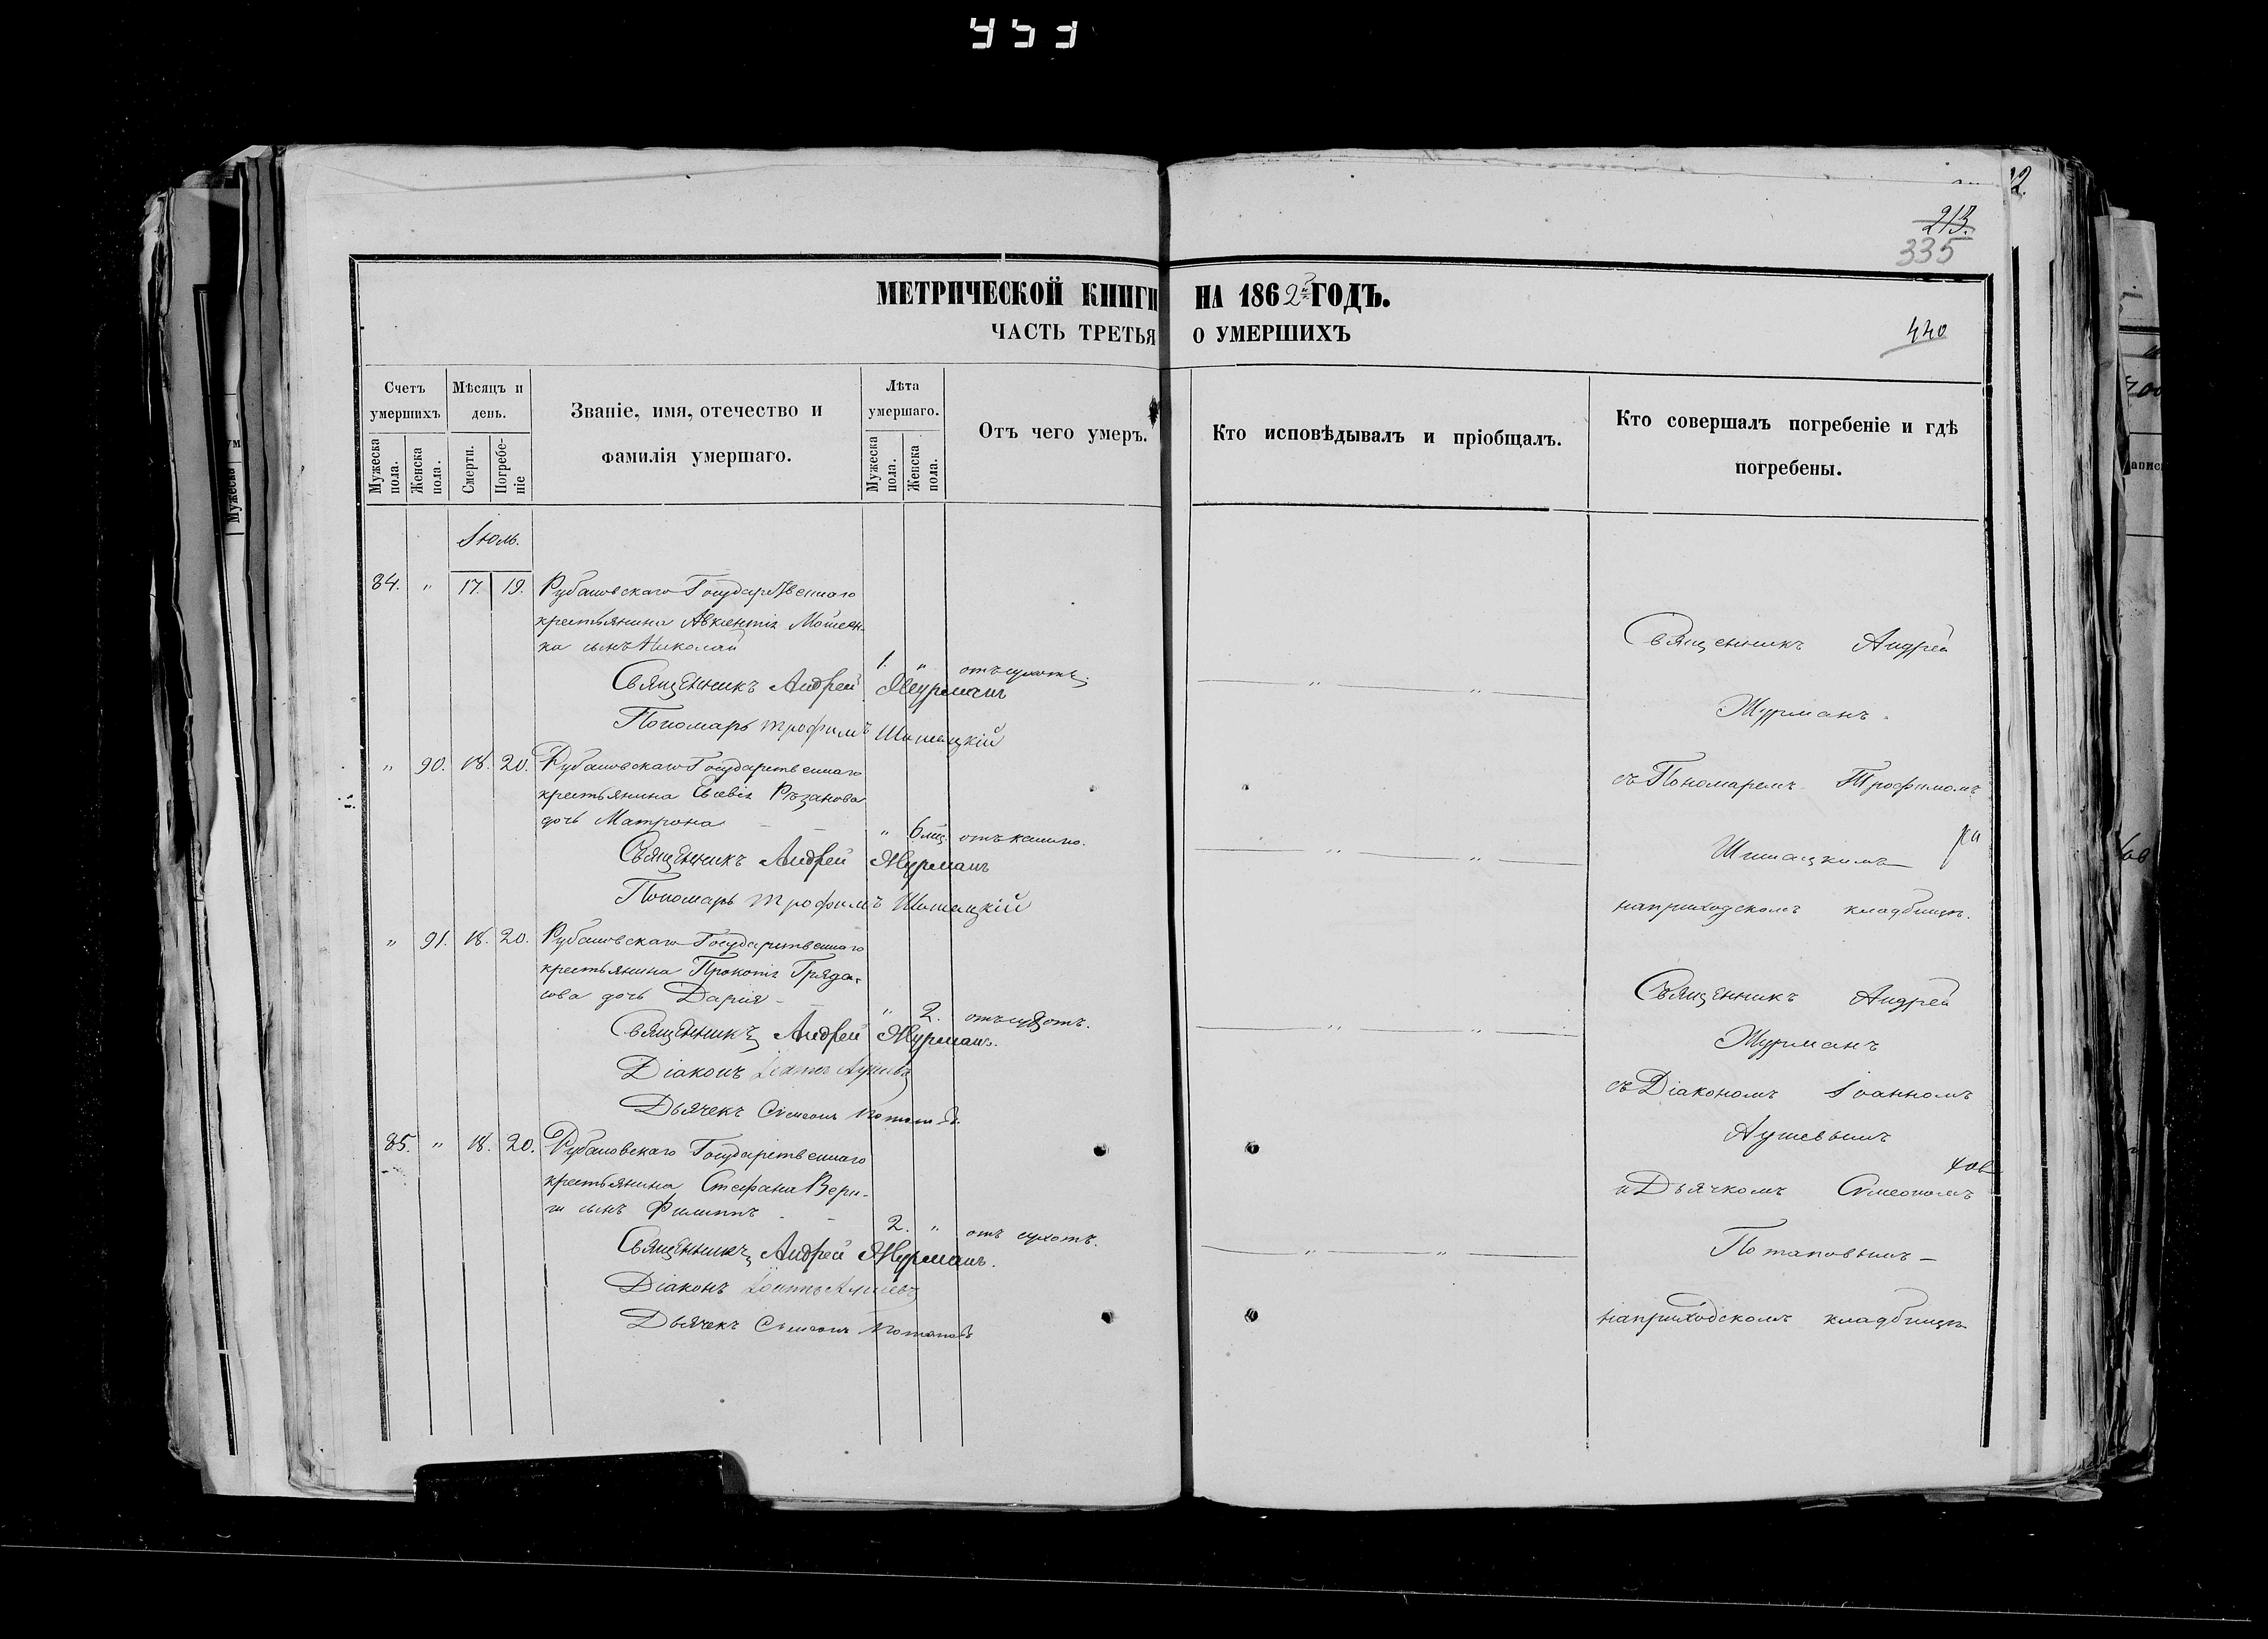 453
213.
335
440
МЕТРИЧЕСКОЙ КНИГИ НА 1862й ГОДЪ.
ЧАСТЬ ТРЕТЬЯ О УМЕРШИХЪ
Счетъ умершихъ
Мужеска пола.
Женска пола.
Мѣсяцъ и день.
Смерти.
Погребеніе
Званіе, имя, отечество и фамилія умершаго.
Лѣта умершаго.
Мужеска пола.
Женска пола.
Отъ чего умеръ.
Кто исповѣдывалъ и пріобщалъ.
Кто совершалъ погребеніе и гдѣ погребены.
Іюль.
84. " 17. 19. Рубановскаго Государственнаго
крестьянина Авксентія Мошен-
ка сынъ Николай 1. " отъ сухотъ.
Священникъ Андрей Журманъ
Пономарь Трофимъ Шишацкій
" 90. 18. 20. Рубановскаго Государственнаго
крестьянина Евсевія Рѣзанова
дочь Матрона " 6 мц. отъ кашлю.
Священникъ Андрей Журманъ
Пономарь Трофимъ Шишацкій
" 91. 18. 20. Рубановскаго Государственнаго
крестьянина Прокопія Гряда-
сова дочь Дарія " 2. отъ сухотъ.
Священникъ Андрей Журманъ.
Діаконъ Іоаннъ
Дьячекъ Симеонъ Потаповъ.
85. " 18. 20. Рубановскаго Государственнаго
крестьянина Стефана Вери-
ги сынъ Филиппъ 2. " отъ сухотъ.
Священникъ Андрей Журманъ.
Діаконъ Іоаннъ
Дьячекъ Симеонъ Потаповъ
Священникъ Андрей
Журманъ.
съ Пономаремъ Трофимомъ
Шишацкимъ
на приходскомъ кладбищѣ.
Священникъ Андрей
Журманъ
съ Діакономъ Іоанномъ
и Дьячкомъ Симеономъ
Потаповымъ
на приходскомъ кладбищѣ